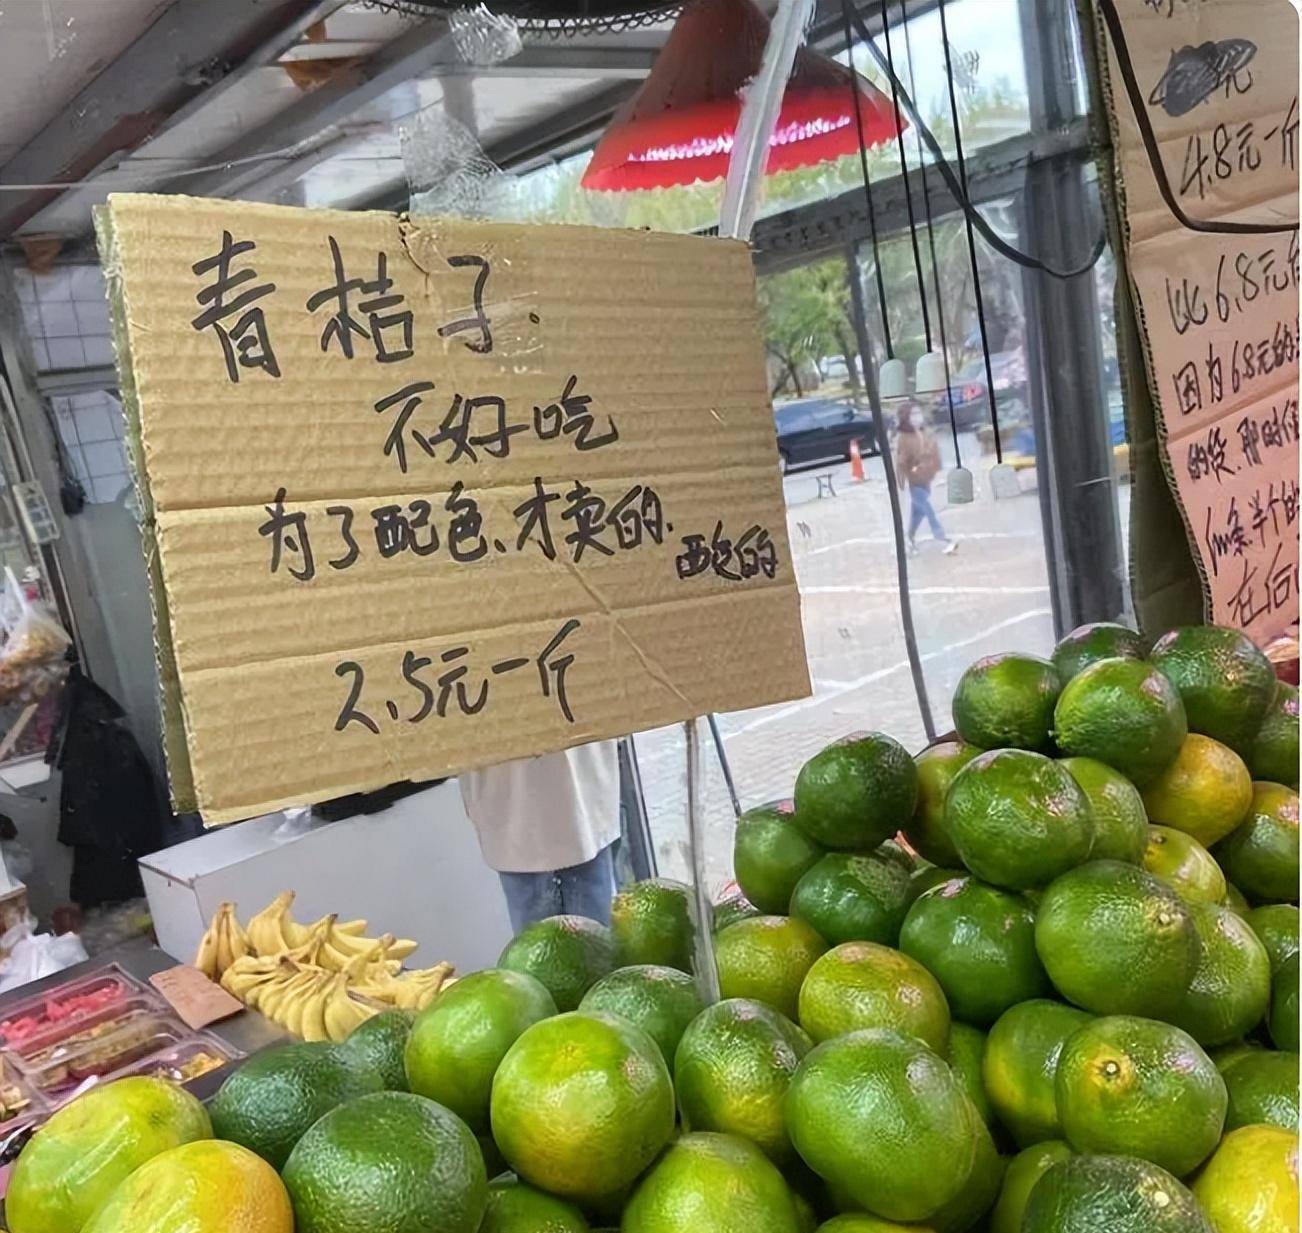 青桔子.
不好吃
为了配色、才卖的.
酸的
2.5元一斤
元
4.8元一斤
比6.8元
因为6.8元的
的货.那时候
在后